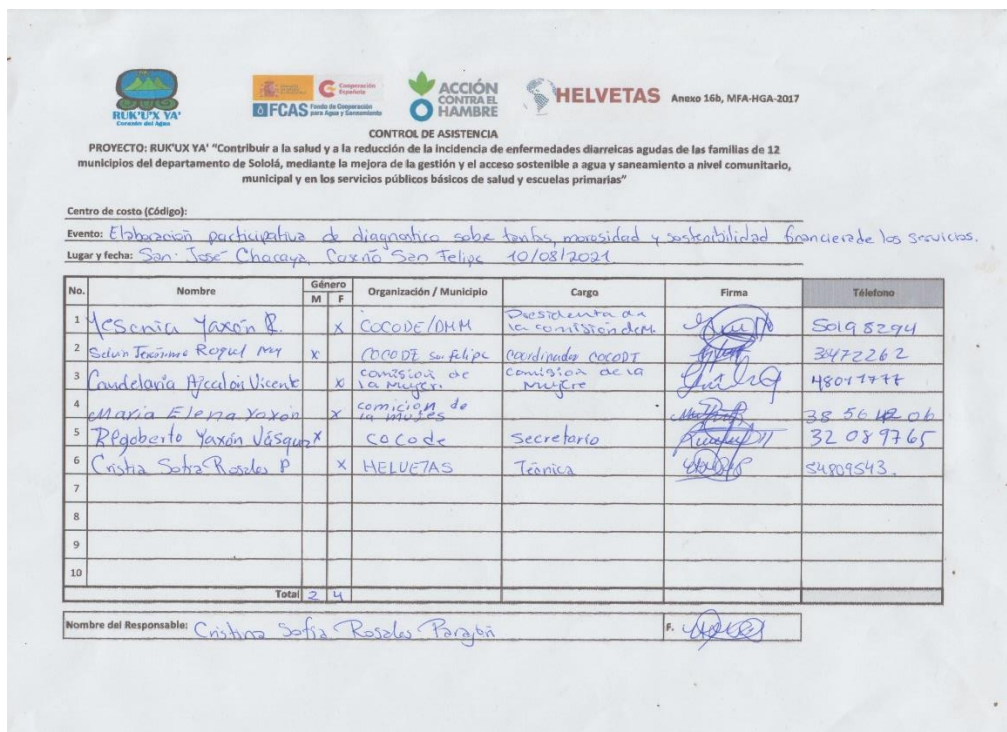 RUK'U'X YA'
Corazón del Agua
Cooperación Española
FCAS Fondo de Cooperación para Agua y Saneamiento
ACCIÓN CONTRA EL HAMBRE
HELVETAS Anexo 16b, MFA-HGA-2017
CONTROL DE ASISTENCIA
PROYECTO: RUK'UX YA' "Contribuir a la salud y a la reducción de la incidencia de enfermedades diarreicas agudas de las familias de 12
municipios del departamento de Sololá, mediante la mejora de la gestión y el acceso sostenible a agua y saneamiento a nivel comunitario,
municipal y en los servicios públicos básicos de salud y escuelas primarias"
Centro de costo (Código):
Evento: Elaboración participativa de diagnostico sobre tarifas, morosidad y sostenibilidad financiera de los servicios.
Lugar y fecha: San José Chacaya, Caserío San Felipe 10/08/2021
No. Nombre Género M F Organización / Municipio Cargo Firma Télefono
1 Yesenia Yaxón R. x COCODE/DMM Presidenta de la comisión de M 5019 8294
2 Selvin Jerónimo Roquel x COCODE san felipe Coordinador COCODE 30472262
3 Candelaria Ajcalón Vicente x comisión de la Mujer. comisión de la Mujere 48011777
4 Maria Elena Yaxón x comición de la mujes 38 56 42 06
5 Rigoberto Yaxón Vásquez x cocode Secretario 32 089765
6 Cristia Sofia Rosales P x HELVETAS Técnica 54809543.
7
8
9
10
Total 2 4
Nombre del Responsable: Cristina Sofía Rosales Parajón F.